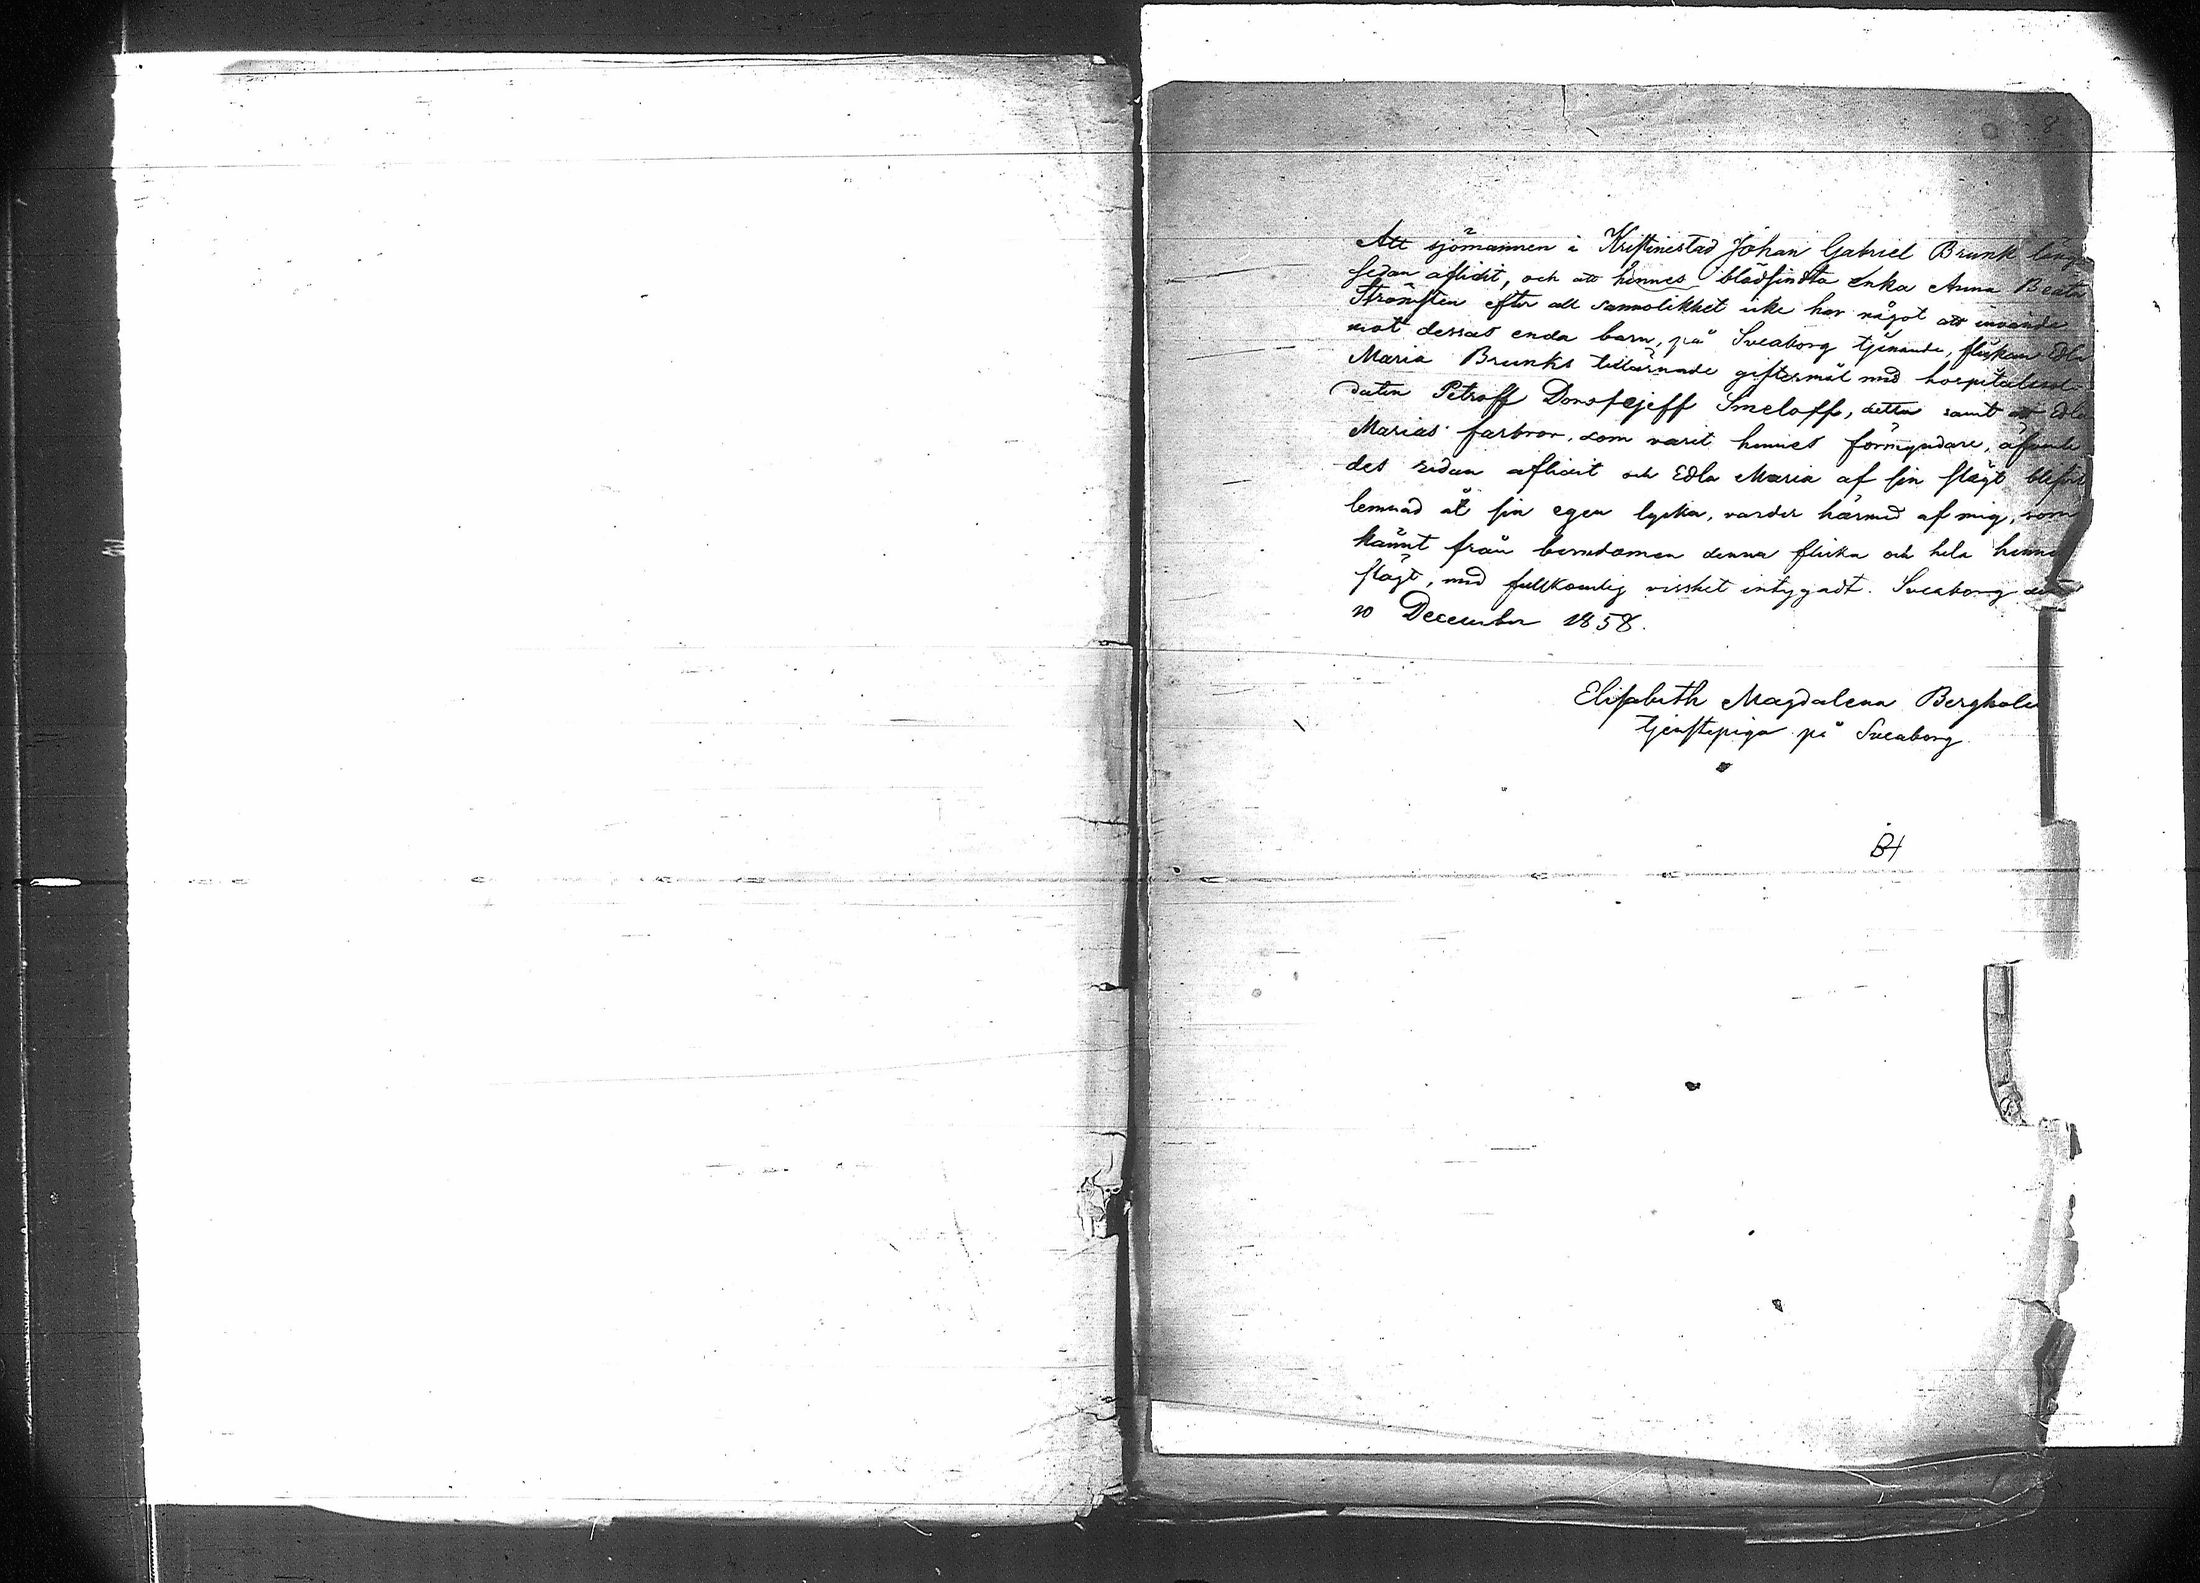 8
Att sjömannen i Kristinestad Johan Gabriel Brunk läng
sedan aflidit, och att hennes blödsindta enka Anna Beata
Strömsten efter all sannolikhet icke har något att invända
mot dessas enda barn, på Sveaborg tjenande, flickan Edla
Maria Brunks tillärnade giftermål med hospitalssol-
daten Petroff Smeloff, detta samt att Edla
Marias farbror, som varit hennes förmyndare, äfvenle
des redan aflidit och Edla Maria af sin slägt blifvit
lemnad åt sin egen lycka, varder härmed af mig, som
kännt från barndomen denna flicka och hela hennes
slägt, med fullkomlig visshet intygadt. Sveaborg den
10 December 1858.
Elisabeth Magdalena Bergholm
tjenstepiga på Sveaborg